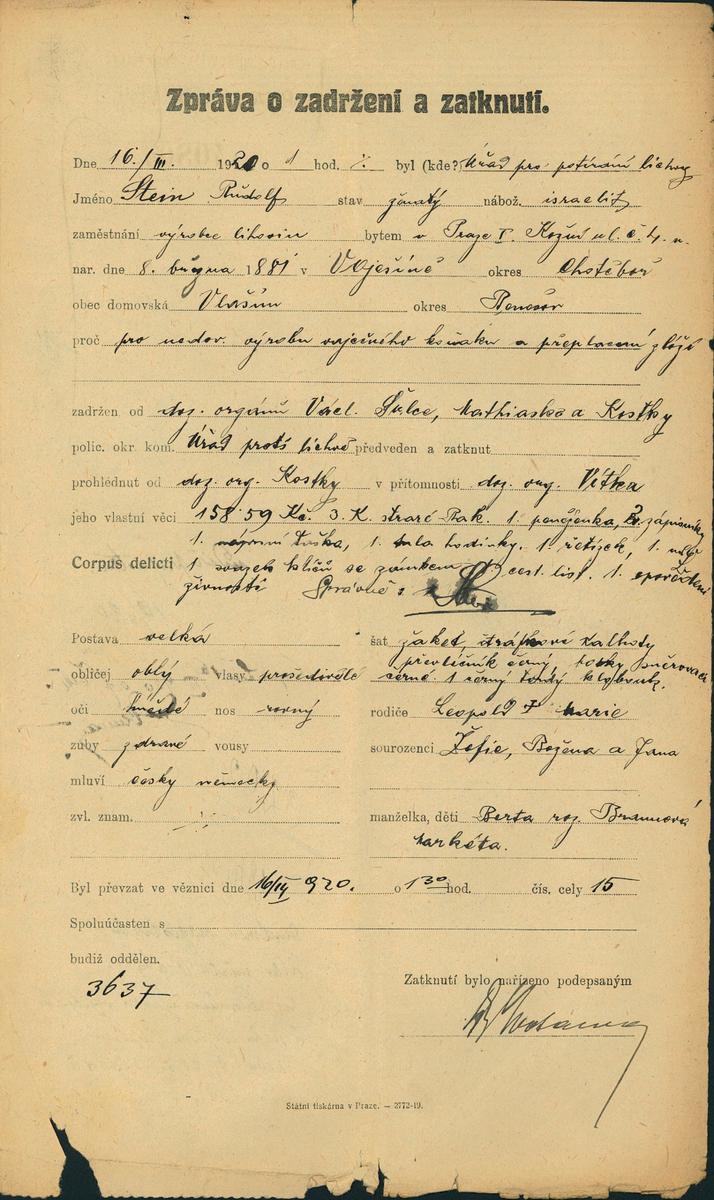 Zpráva o zadržení a zatknutí.
Dne 16./III. 1920 o 1 hod. byl (kde?) Úřad pro potírání lichvy
Jméno Stein Rudolf stav ženatý nábož. israelit
zaměstnání výrobce lihovin bytem v Praze I. Kožná ul. č. 4. n.
nar. dne 8. března 1881 v okres Chotěboř
obec domovská Vlašim okres Benešov
proč pro nedov. výrobu vaječného koňaku a přeplacení zboží
zadržen od doz. orgánů Václ. Šulce, Mathiaska a Kostky
polic. okr. kom. Úřad proti lichvě předveden a zatknut
prohlédnut od doz. org. Kostky v přítomnosti doz. org. Vítka
jeho vlastní věci 158·59 Kč. 3. K. staré Rak. 1. peněženka, 2. zápisníky
1. taška, 1. hodinky. 1. řetízek, 1.
Corpus delicti 1 svazek klíčů se zámkem cest. list. 1. opověděni
živnosti Správně:
Postava velká šat žaket, kalhoty
převlečník černý, botky šněrovací
obličej oblý vlasy prošedivělé černé. 1 černý tvrdý klobouk.
oči hnědé nos rovný rodiče Leopold † Marie
zuby zdravé vousy sourozenci Žofie, Božena a Jana
mluví česky německy
zvl. znam. manželka, děti Berta roz. Braunová
Markéta.
Byl převzat ve věznici dne 16/III 920. o 1 30 hod. čís. cely 15
Spoluúčasten s
budiž oddělen.
3637
Zatknutí bylo nařízeno podepsaným
Státní tiskárna v Praze. — 2772-19.